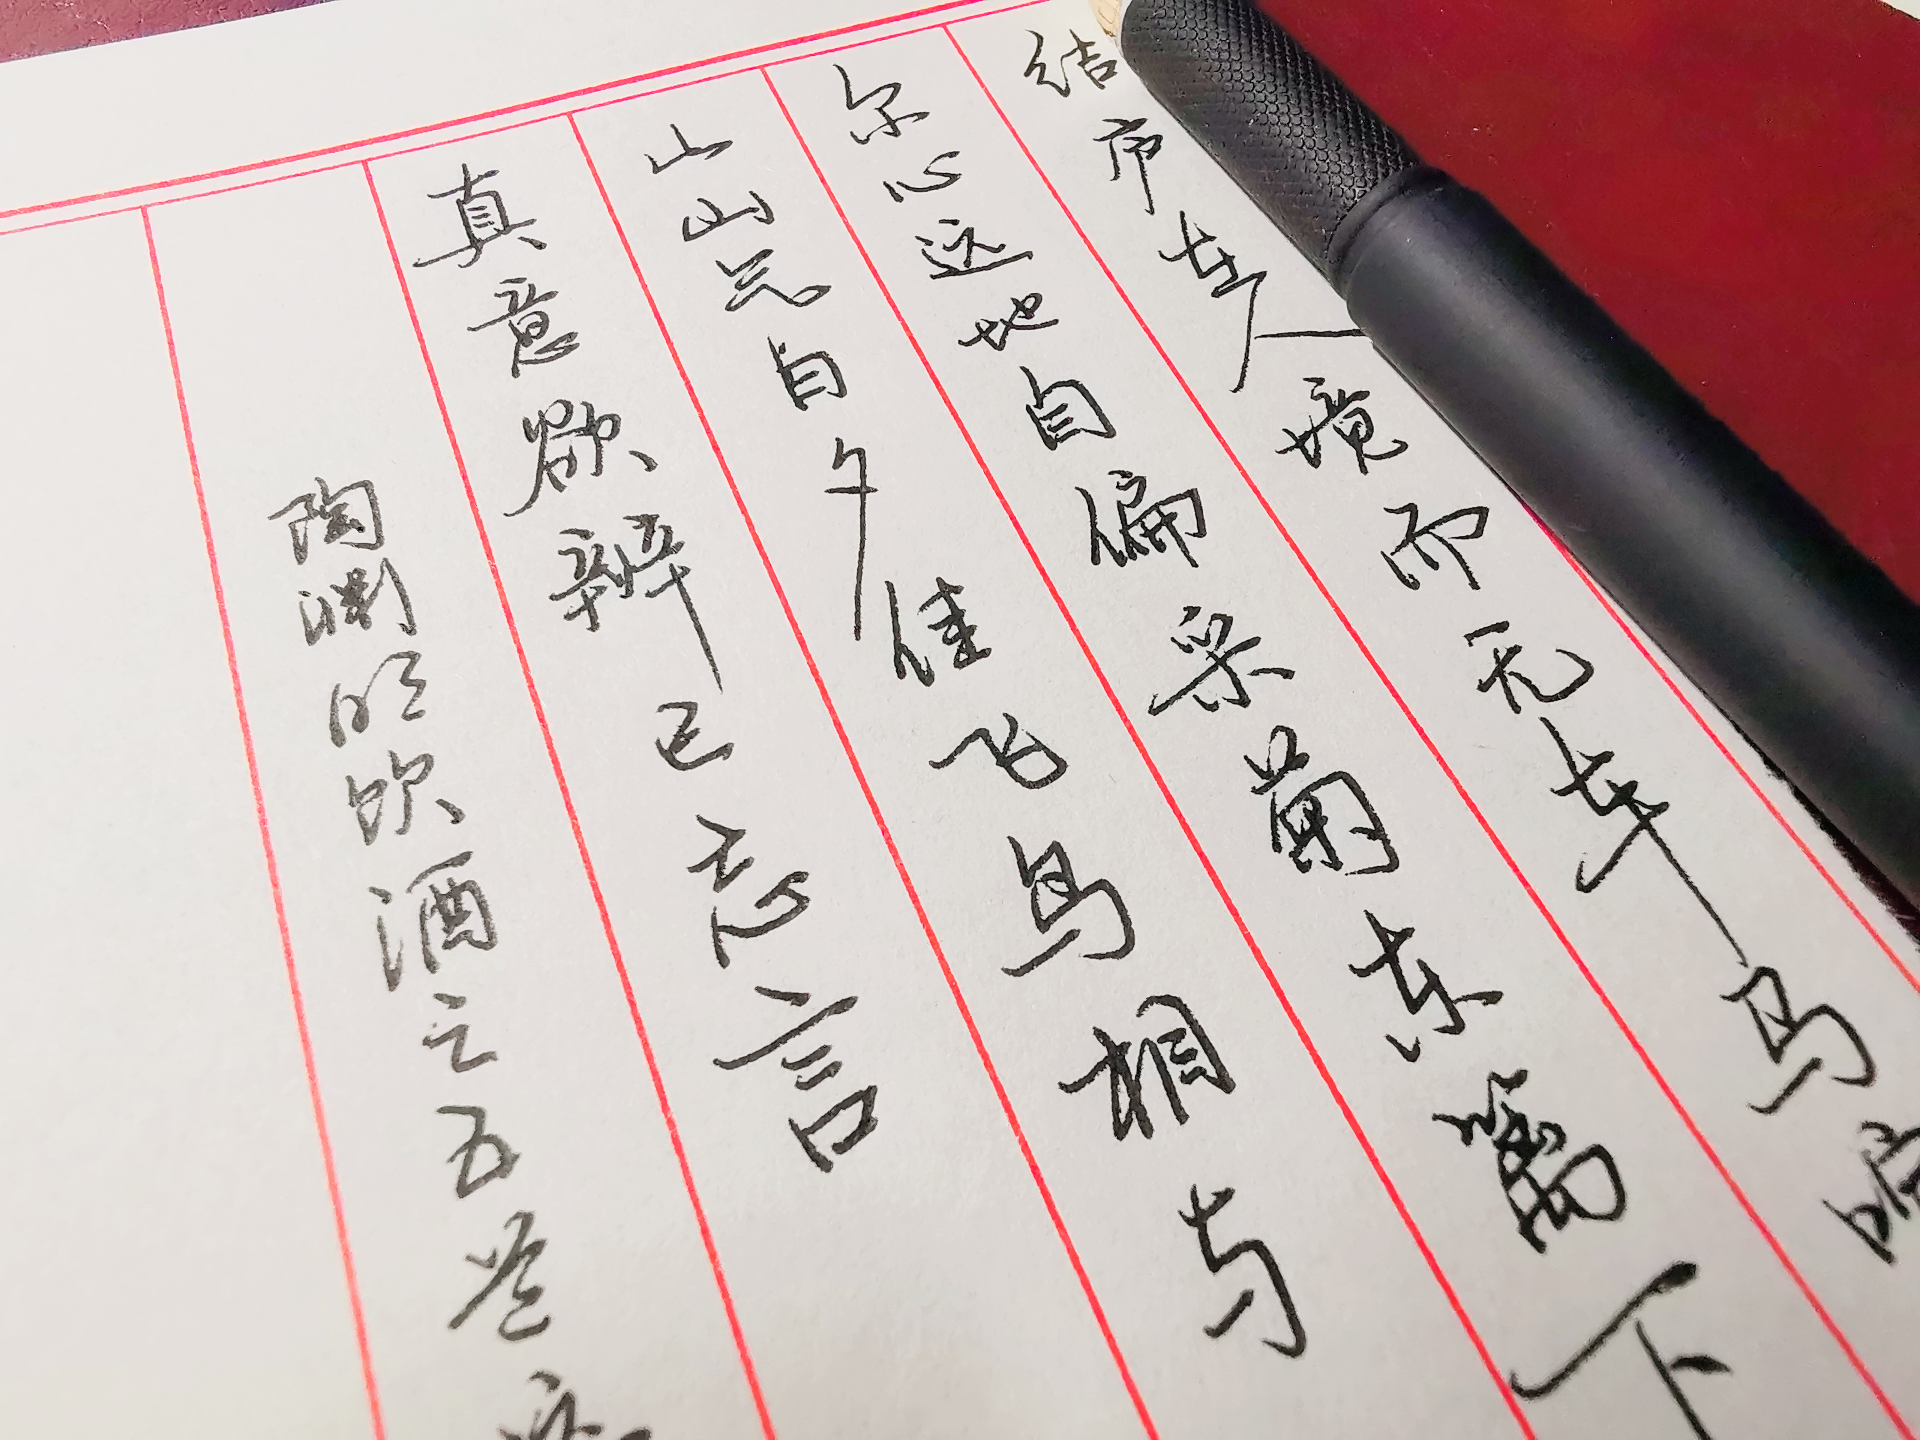 结庐在人境而无车马喧
尔心远地自偏采菊东篱下
山山气日夕佳飞鸟相与
真意欲辨已忘言
陶渊明饮酒之五